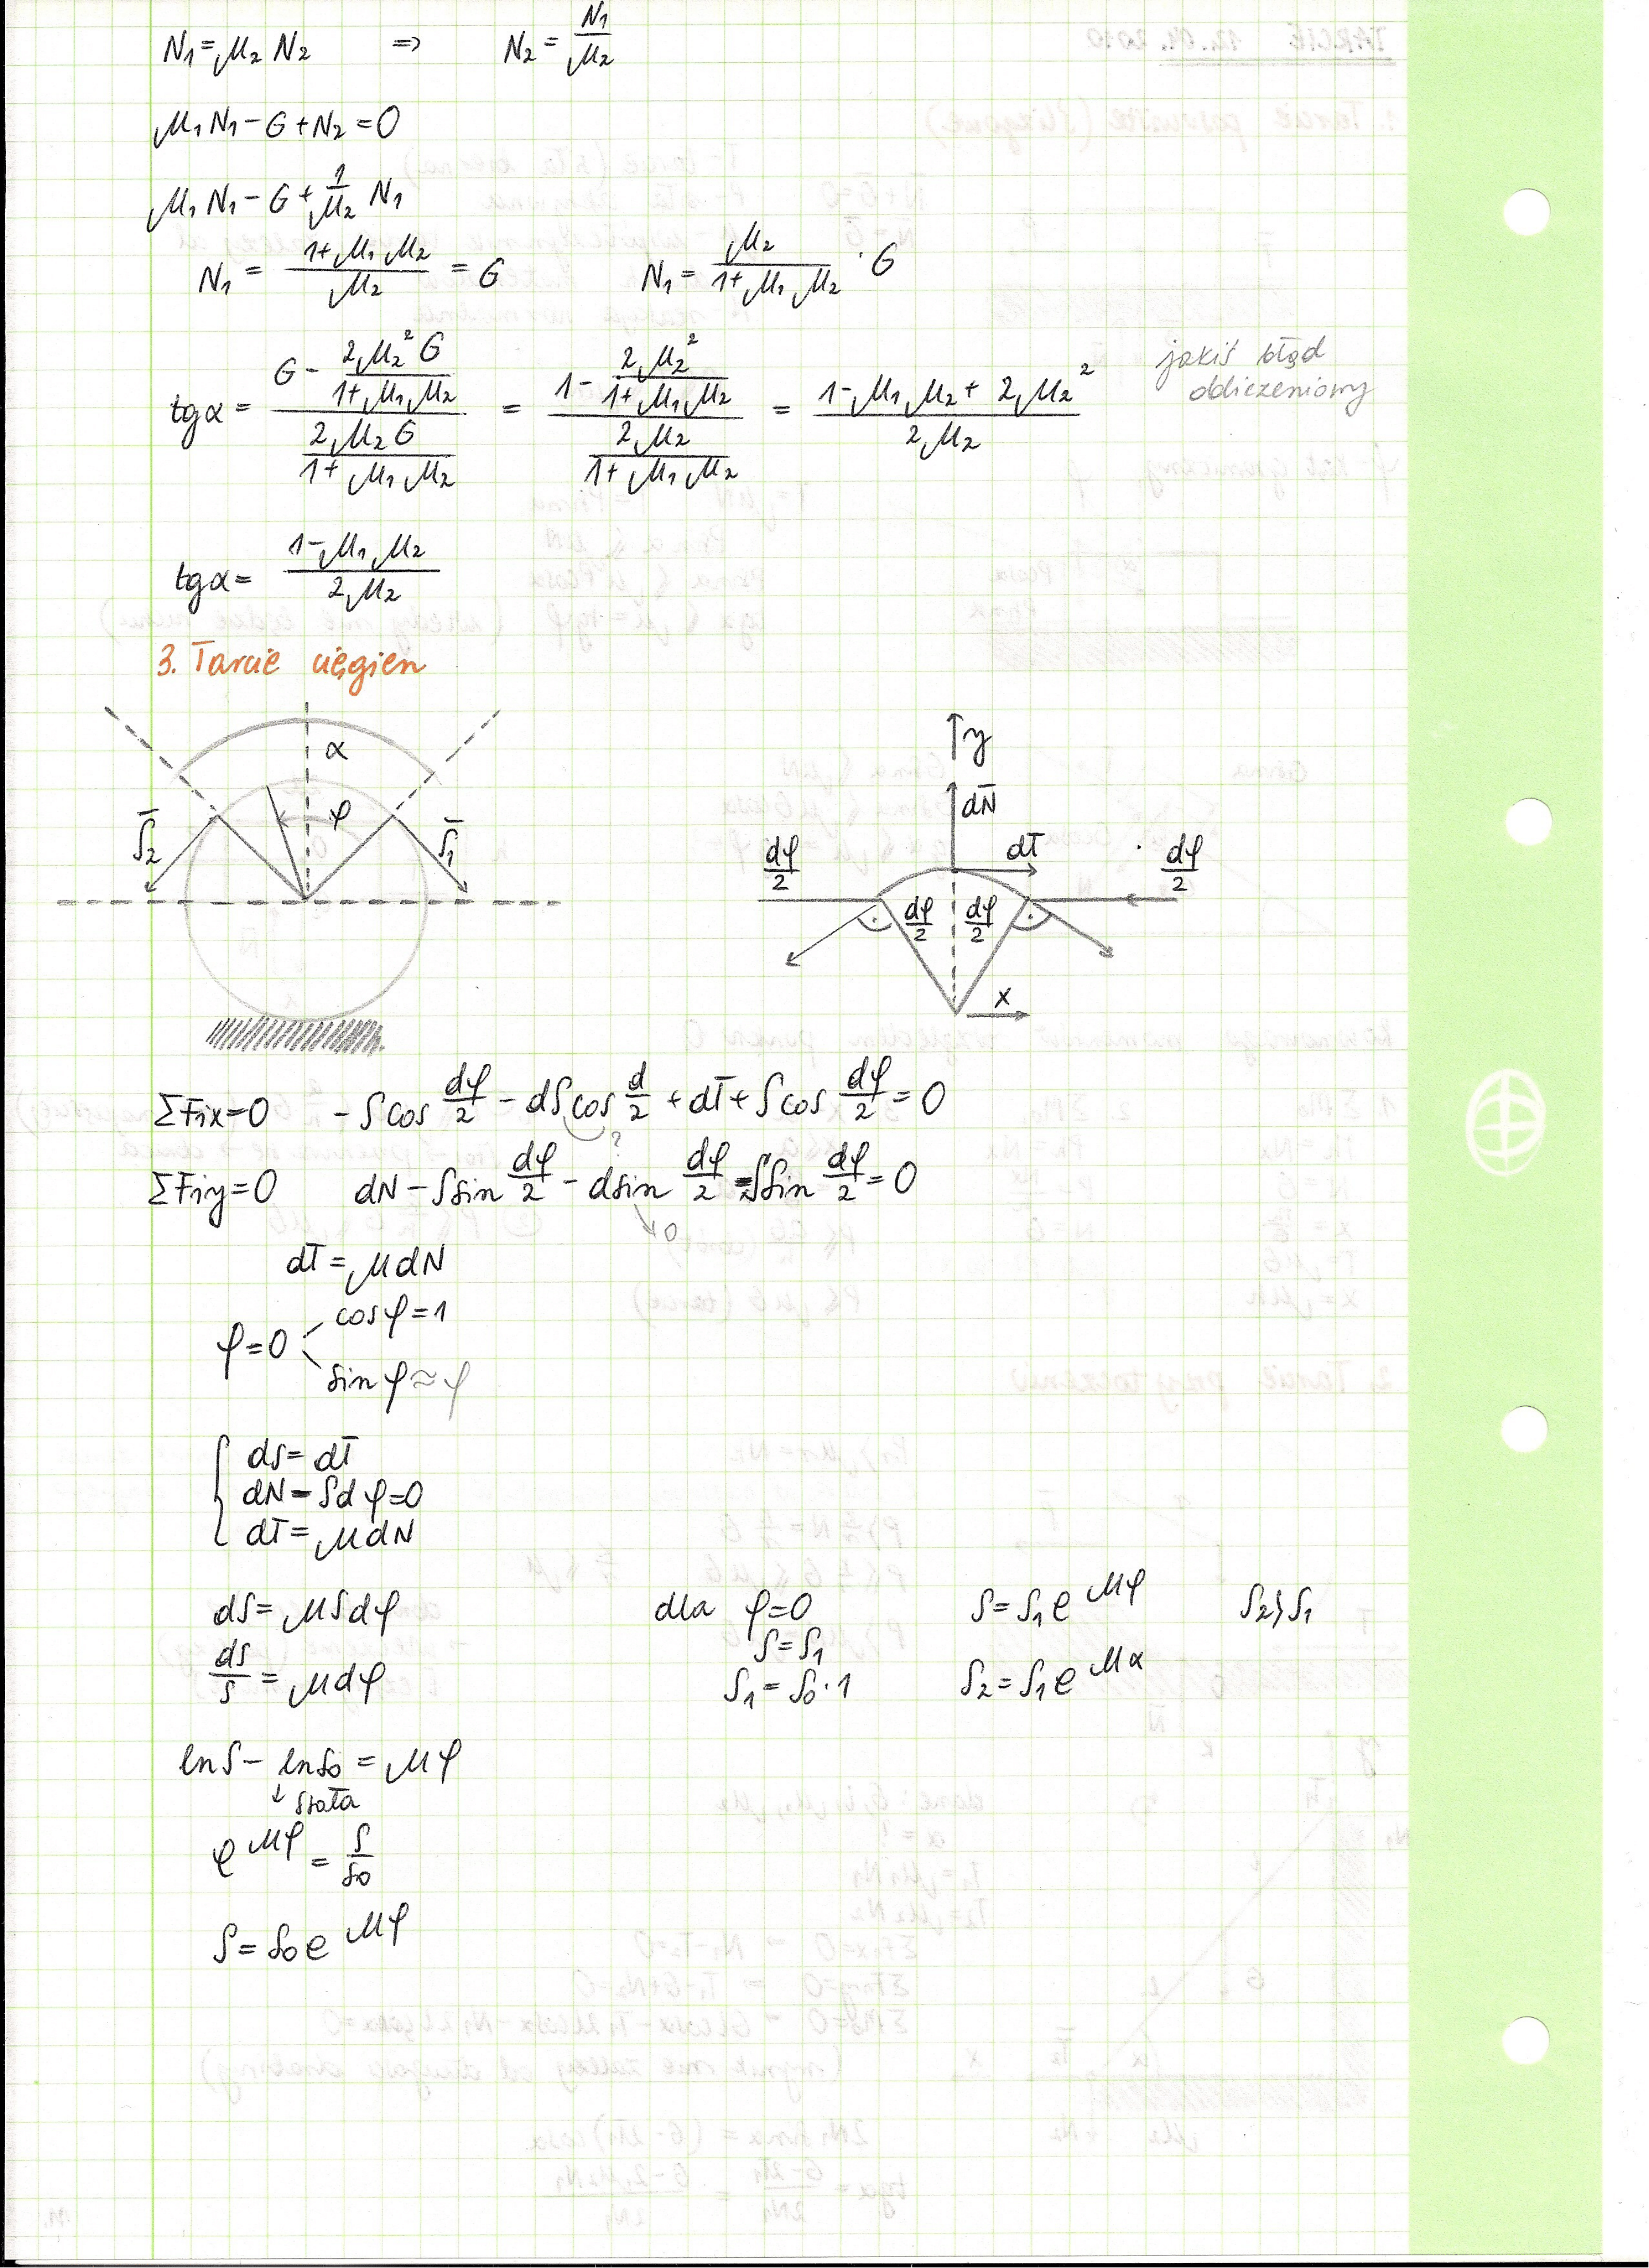 N₁ = μ₂ N₂ => N₂ = N₁/μ₂
μ₁N₁ - G + N₂ = 0
μ₁N₁ - G + 1/μ₂ N₁
N₁ = (1+μ₁μ₂)/μ₂ = G N₁ = μ₂/(1+μ₁μ₂) · G
tgα = (G - 2μ₂²G/(1+μ₁μ₂))/(2μ₂G/(1+μ₁μ₂)) = (1 - 2μ₂²/(1+μ₁μ₂))/(2μ₂/(1+μ₁μ₂)) = (1-μ₁μ₂+2μ₂²)/(2μ₂) jakiś błąd
obliczeniowy
tgα = (1-μ₁μ₂)/(2μ₂)
3. Tarcie cięgien
α
φ
S̄₂
S̄₁
y
dN̄
dT̄
dφ/2
dφ/2
dφ/2
dφ/2
x
ΣFix=0 - S cos dφ/2 - dS cos d/2 + dT + S cos dφ/2 = 0
?
ΣFiy=0 dN - S sin dφ/2 - d sin dφ/2 - S sin dφ/2 = 0
0
dT = μdN
φ=0
cosφ=1
sinφ≈φ
dS = dT
dN - Sdφ = 0
dT = μdN
dS = μSdφ dla φ=0 S = S₁e^μφ S₂>S₁
dS/S = μdφ S = S₁
S₁ = S₀·1 S₂ = S₁e^μα
lnS - lnS₀ = μφ
↓ stała
e^μφ = S/S₀
S = S₀e^μφ